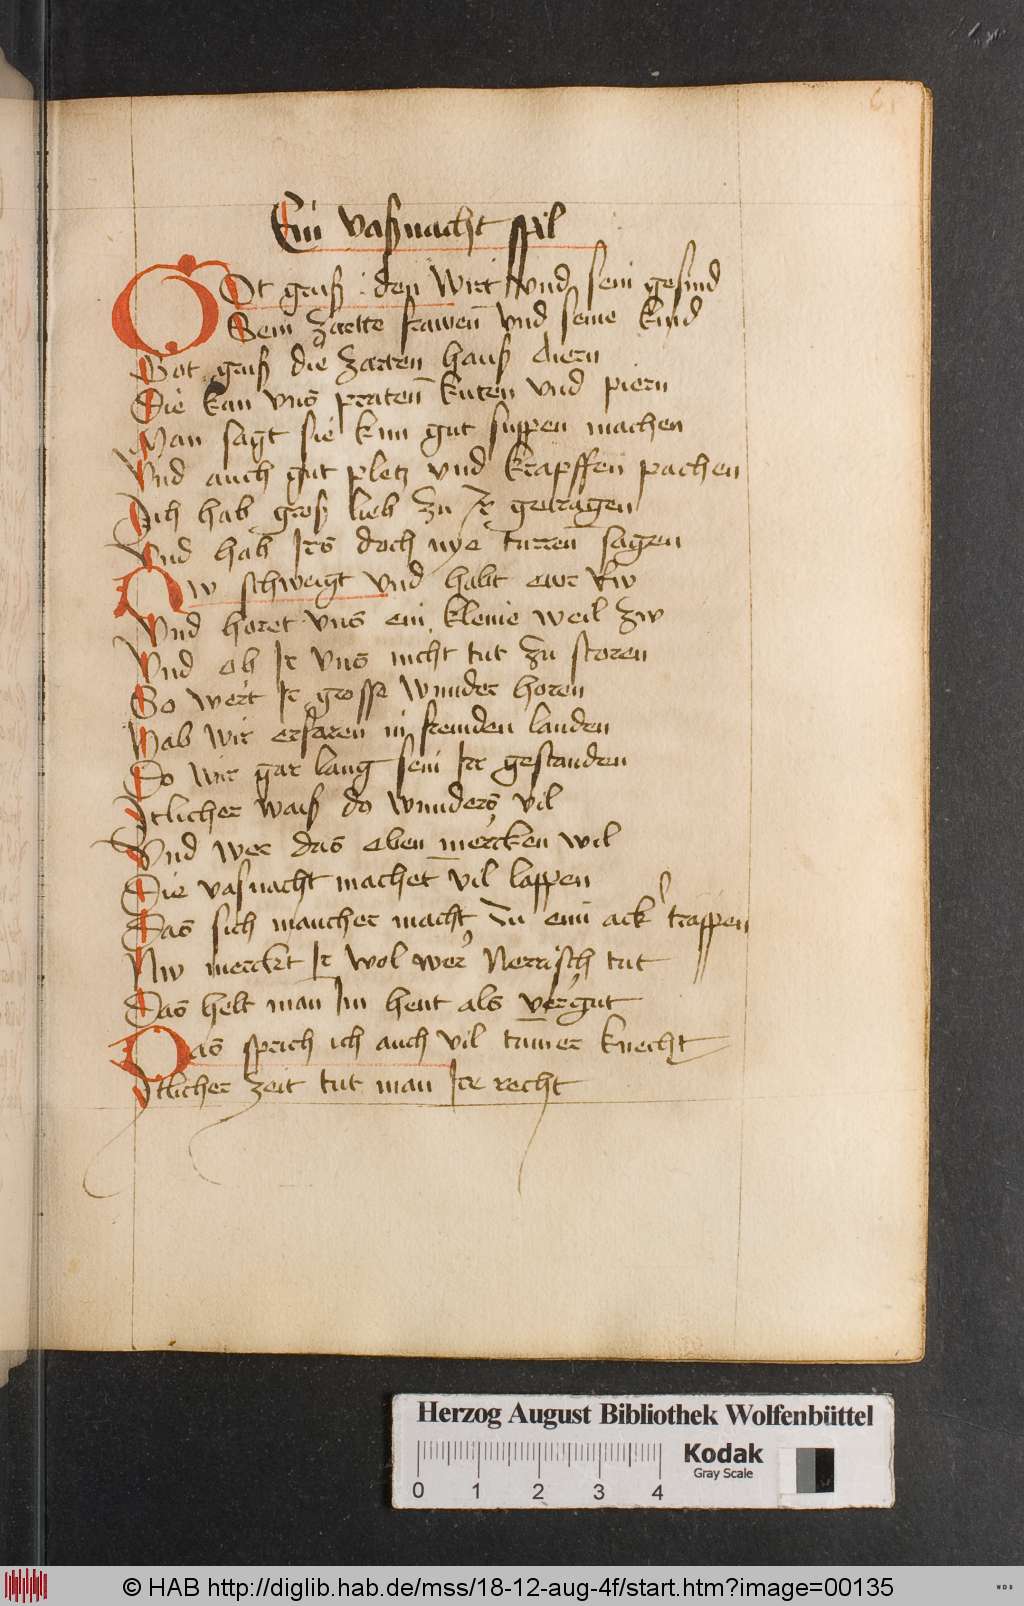 61
Ein vaßnacht spil
GOt gruß den wirt vnd sein gesind
Sein zartte frawen̄ vnd seine kind
Got gruß die zarten hauß diern
Die kan vns praten̄ kuten vnd piern
Man sagt sie kun gut suppen machen
Vnd auch gut pletz vnd krapffen pachen
Ich hab groß lieb zu Ir getragen
Vnd hab Irs doch nye turren̄ sagen
Nw schweigt vnd habt ewr rw
Vnd horet vns ein kleine weil zw
Vnd ob Ir vns nicht tut zu storen
So wert Ir grosse wunder horen
Hab wir erfaren in fremden landen
Do wir gar lang sein Irr gestanden
Itlicher waiß do wunders vil
Vnd wer das eben mercken wil
Die vasnacht machet vil lappen
Das sich mancher macht zu eim ack trappen
Nw merckt Ir wol wer Nerrisch tut
Das helt man Im hent als vergut
Das sprich ich auch vil tum̄er knecht
Itlicher zeit tut man Irr recht
Herzog August Bibliothek Wolfenbüttel
Kodak
Gray Scale
0 1 2 3 4
© HAB http://diglib.hab.de/mss/18-12-aug-4f/start.htm?image=00135